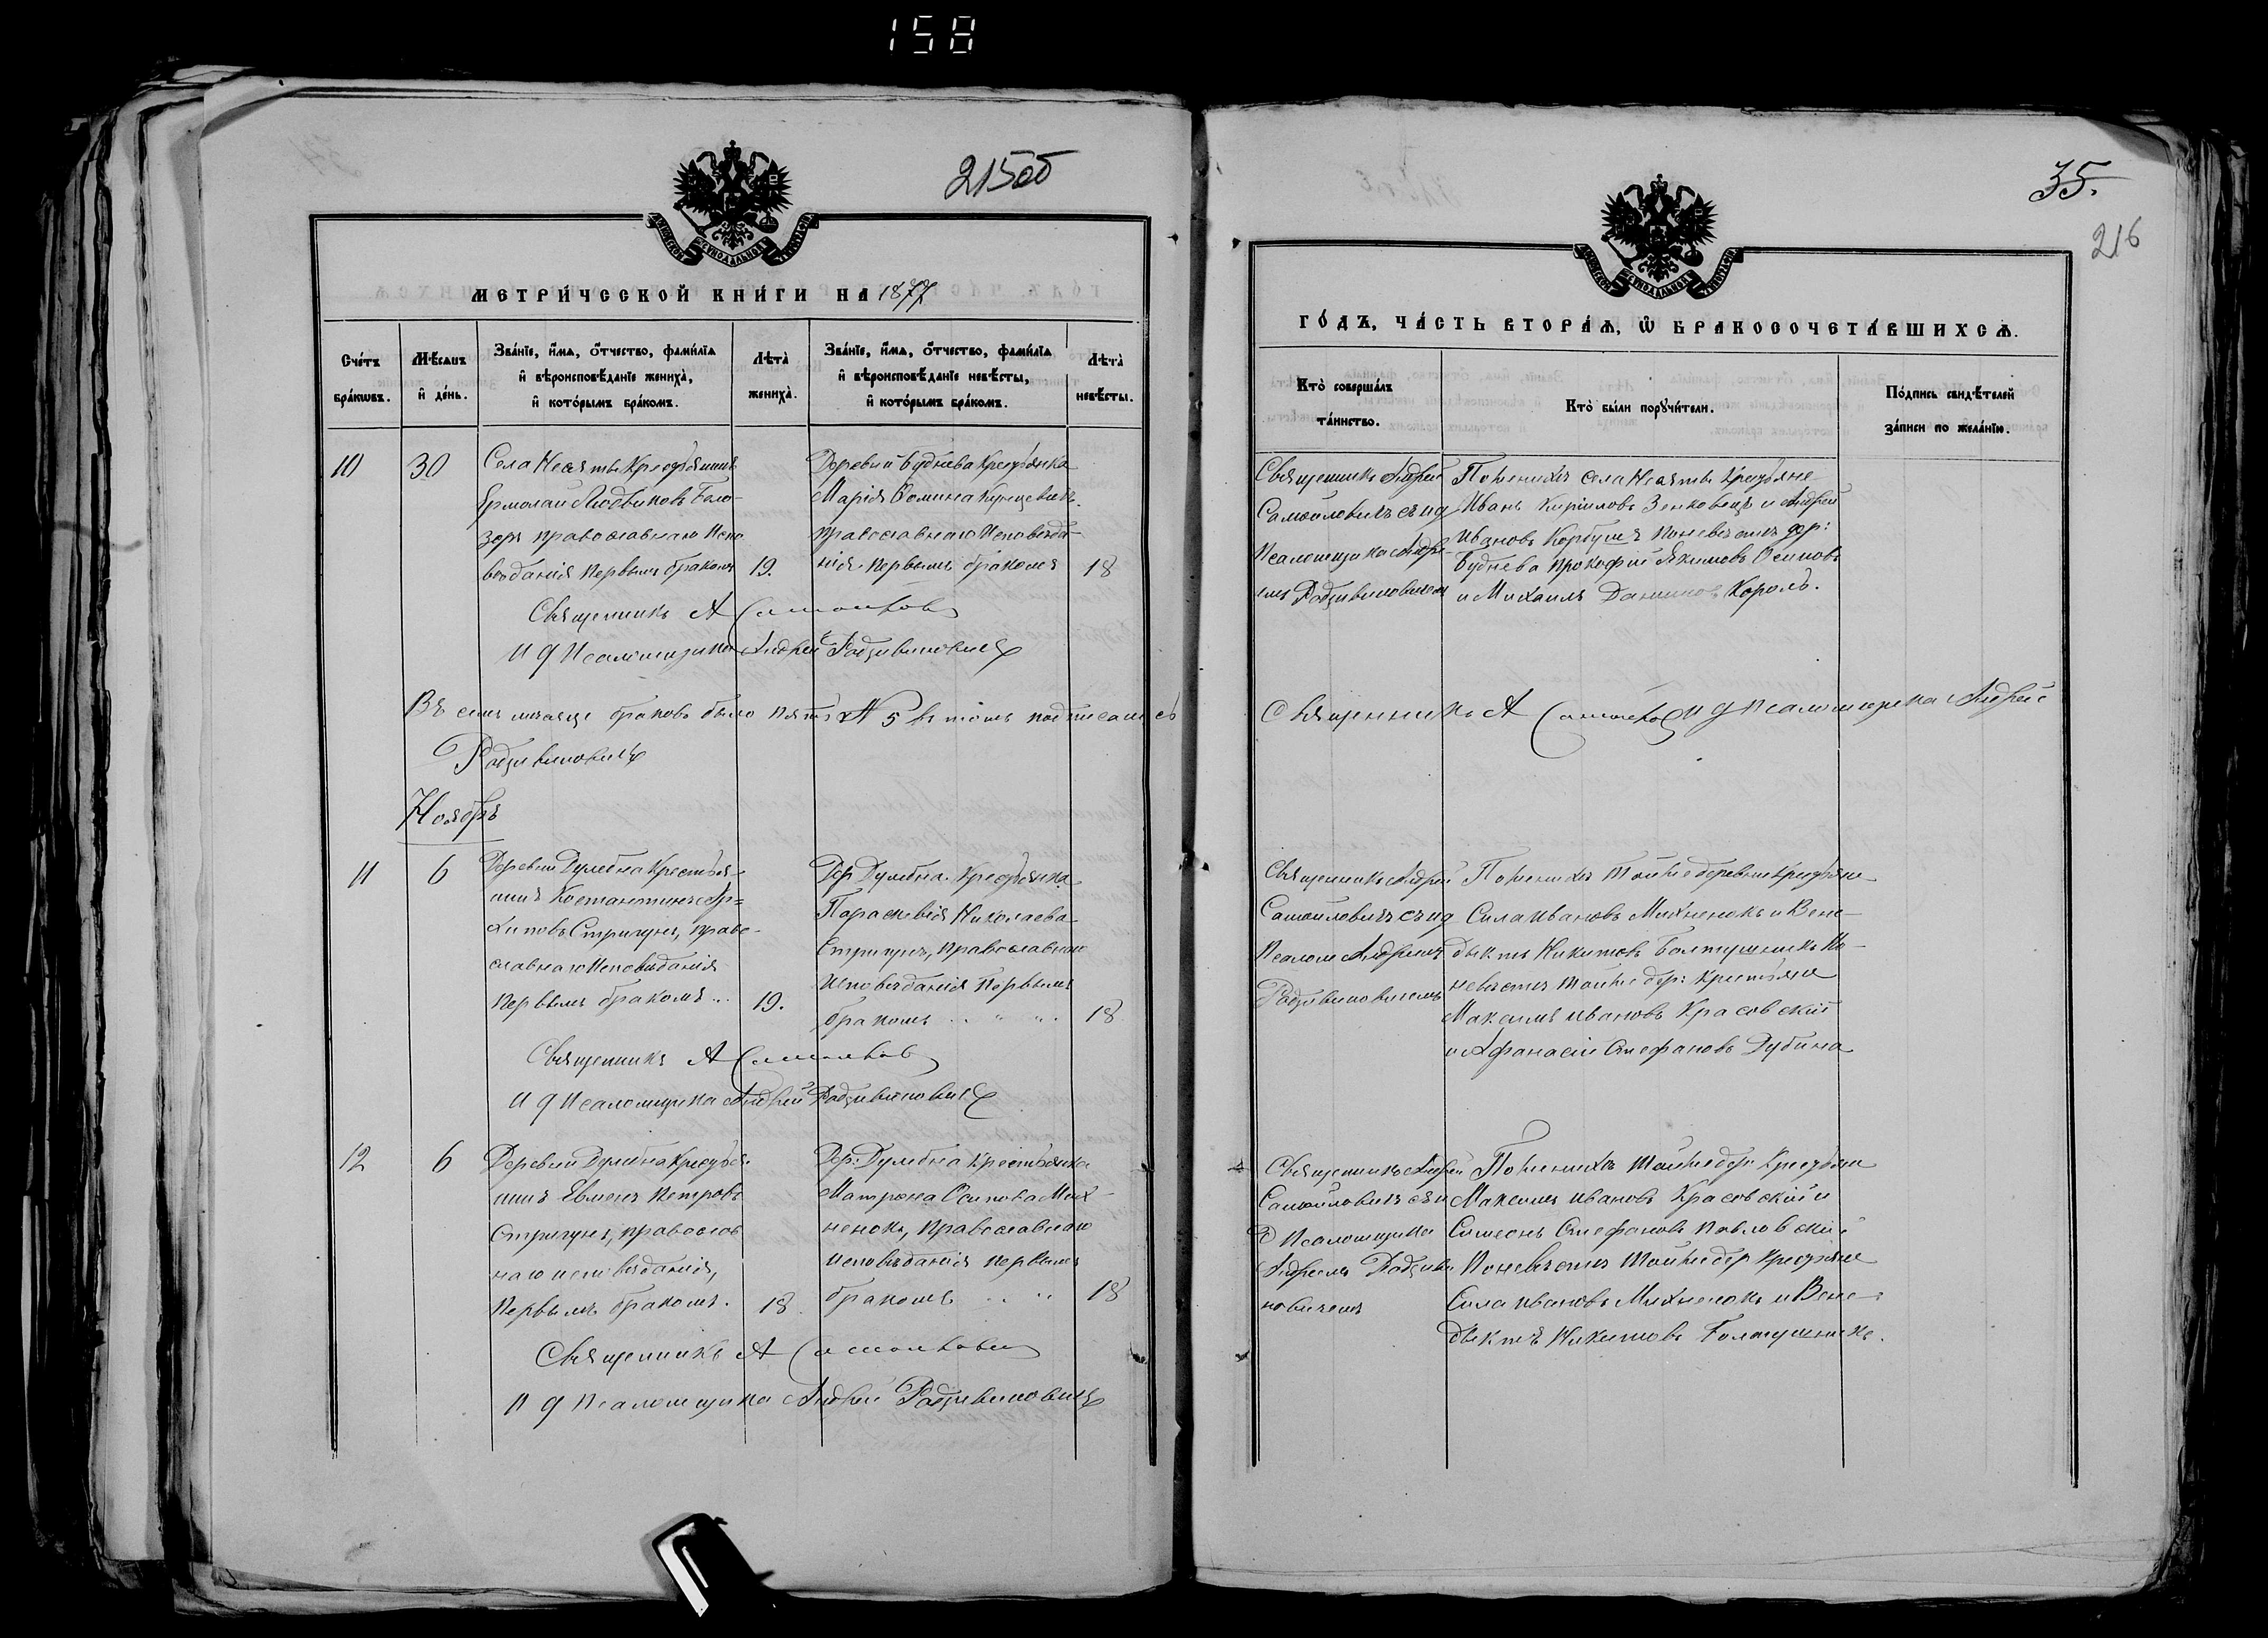 158
215об
МЕТРИ́ЧЕСКОЙ КНИ́ГИ НА 1877
Сче́тъ бра́кѡвъ.
Мѣ́сѧцъ и҆ де́нь.
Зва́нїе, и҆́мѧ, ѻ҆́тчество, фами́лїѧ и҆ вѣроисповѣ́данїе жениха̀, и҆ кото́рымъ бра́комъ.
Лѣта̀ жениха̀.
Зва́нїе, и҆́мѧ, ѻ҆́тчество, фами́лїѧ и҆ вѣроисповѣ́данїе невѣ́сты, и҆ кото́рымъ бра́комъ.
Лѣта̀ невѣ́сты.
10
30
Села Несяты Крестьянинъ
Ермолай Людвиковъ Бело-
зоръ православнаго Испо
вѣданія первымъ бракомъ
19.
Деревни Буднева Крестьянка
Марія Фомина
православнаго Исповѣда-
нія первымъ бракомъ
18
Священникъ А Самойлович
И д Псаломщика Андрей Радзивиновичъ
Въ семъ мѣсяце браковъ было пять № 5 в томъ подписались
Радзивиновичъ
Ноябрь
11
6
Деревни Дулебна Крестья-
нинъ Костантинъ Ар-
хиповъ Стригунъ, право-
славнаго Исповѣданія
первымъ бракомъ
19.
Дер Дулебна Крестьянка
Параскевія Николаева
Стригунъ, православнаго
исповѣданія первымъ
бракомъ
18
Священникъ А Самойлович
И д Псаломщика Андрей Радзивиновичъ
12
6
Деревни Дулебна Крестья-
нинъ Евменъ Петровъ
Стригунъ, православ
наго исповѣданія,
первымъ бракомъ.
18.
Дер. Дулебна Крестьянка
Матрона Осипова Мих-
ненокъ, Православнаго
исповѣданія первымъ
бракомъ
18
Священникъ А Самойлович
И д Псаломщика Андрей Радзивиновичъ
35.
216
ГО́ДЪ, ЧА́СТЬ ВТОРА́Ѧ, Ѡ҆ БРАКОСОЧЕТА́ВШИХСѦ.
Кто̀ соверша́лъ та́инство.
Кто̀ бы́ли порꙋчи́тели.
По́дпись свидѣ́телей за́писи по жела́нїю.
Священникъ Андрей
Самойловичъ съ и д
Псаломщика Андре-
емъ Радзивиновичем
По женихѣ села Несяты Крестьяне
Иванъ Кириловъ Зенковецъ и Андрей
Ивановъ Корбушъ по невѣстѣ дер:
Буднева Прокофій Якимовъ Осиповъ
и Михаилъ Даниловъ Король.
Священникъ А Самойлович И д Псаломщика Андрей
Священникъ Андрей
Самойловичъ съ и д
Псалом Андреемъ
Радзивиновичемъ
По женихѣ той же деревни крестьяне
Сила Ивановъ Михненокъ и Вене-
дыктъ Никитовъ Болтушникъ По
невѣстѣ той же дер: Крестьяне
Максимъ Ивановъ Красовскій
и Афанасій Стефановъ Дубина
Священникъ Андрей
Самойловичъ съ и
д Псаломщика
Андреемъ Радзиви
новичемъ
По женихѣ той же дер. Крестьяне
Максимъ Ивановъ Красовскій и
Симеонъ Стефановъ Павловскій
По невѣстѣ той же дер Крестьяне
Сила Ивановъ Михненокъ и Вене-
дыктъ Никитовъ Болтушникъ.